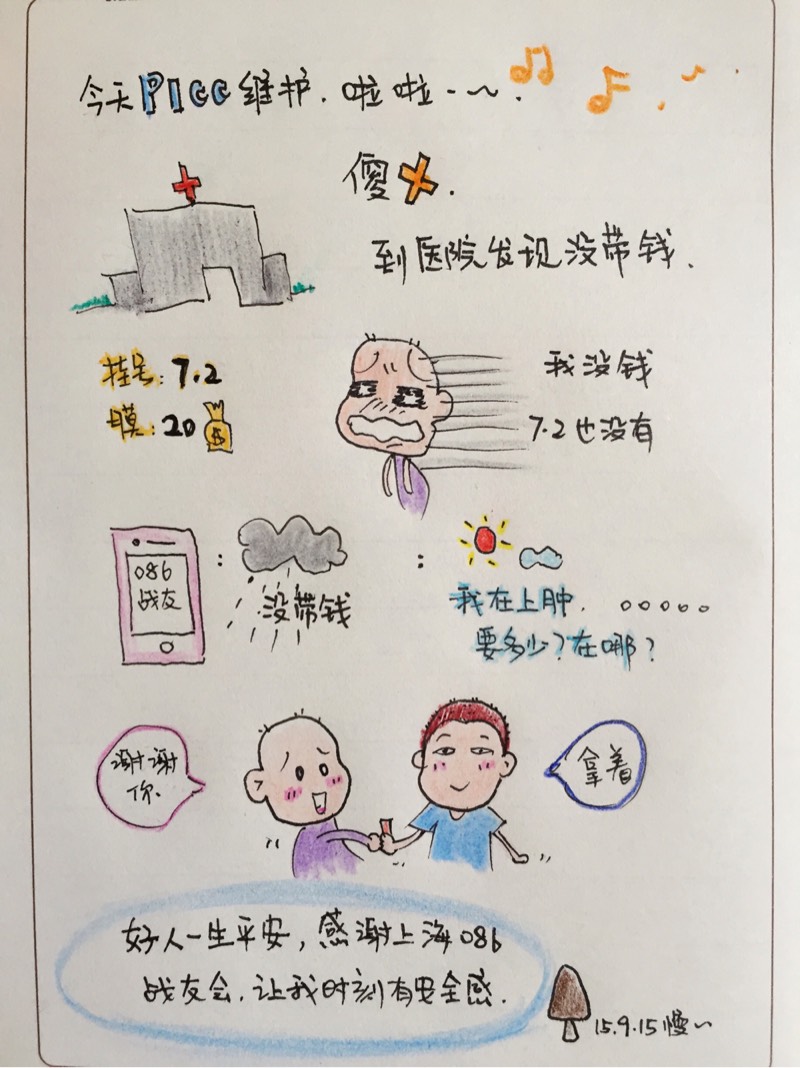 今天PICC维护.啦啦-~.
傻✗.
到医院发现没带钱.
挂号:7.2
膜:20
$
我没钱
7.2也没有
086
战友
:
没带钱
:
我在上肿.。。。。。
要多少?在哪?
谢谢
你.
拿着
好人一生平安,感谢上海086
战友会.让我时刻有安全感.
15.9.15慢~